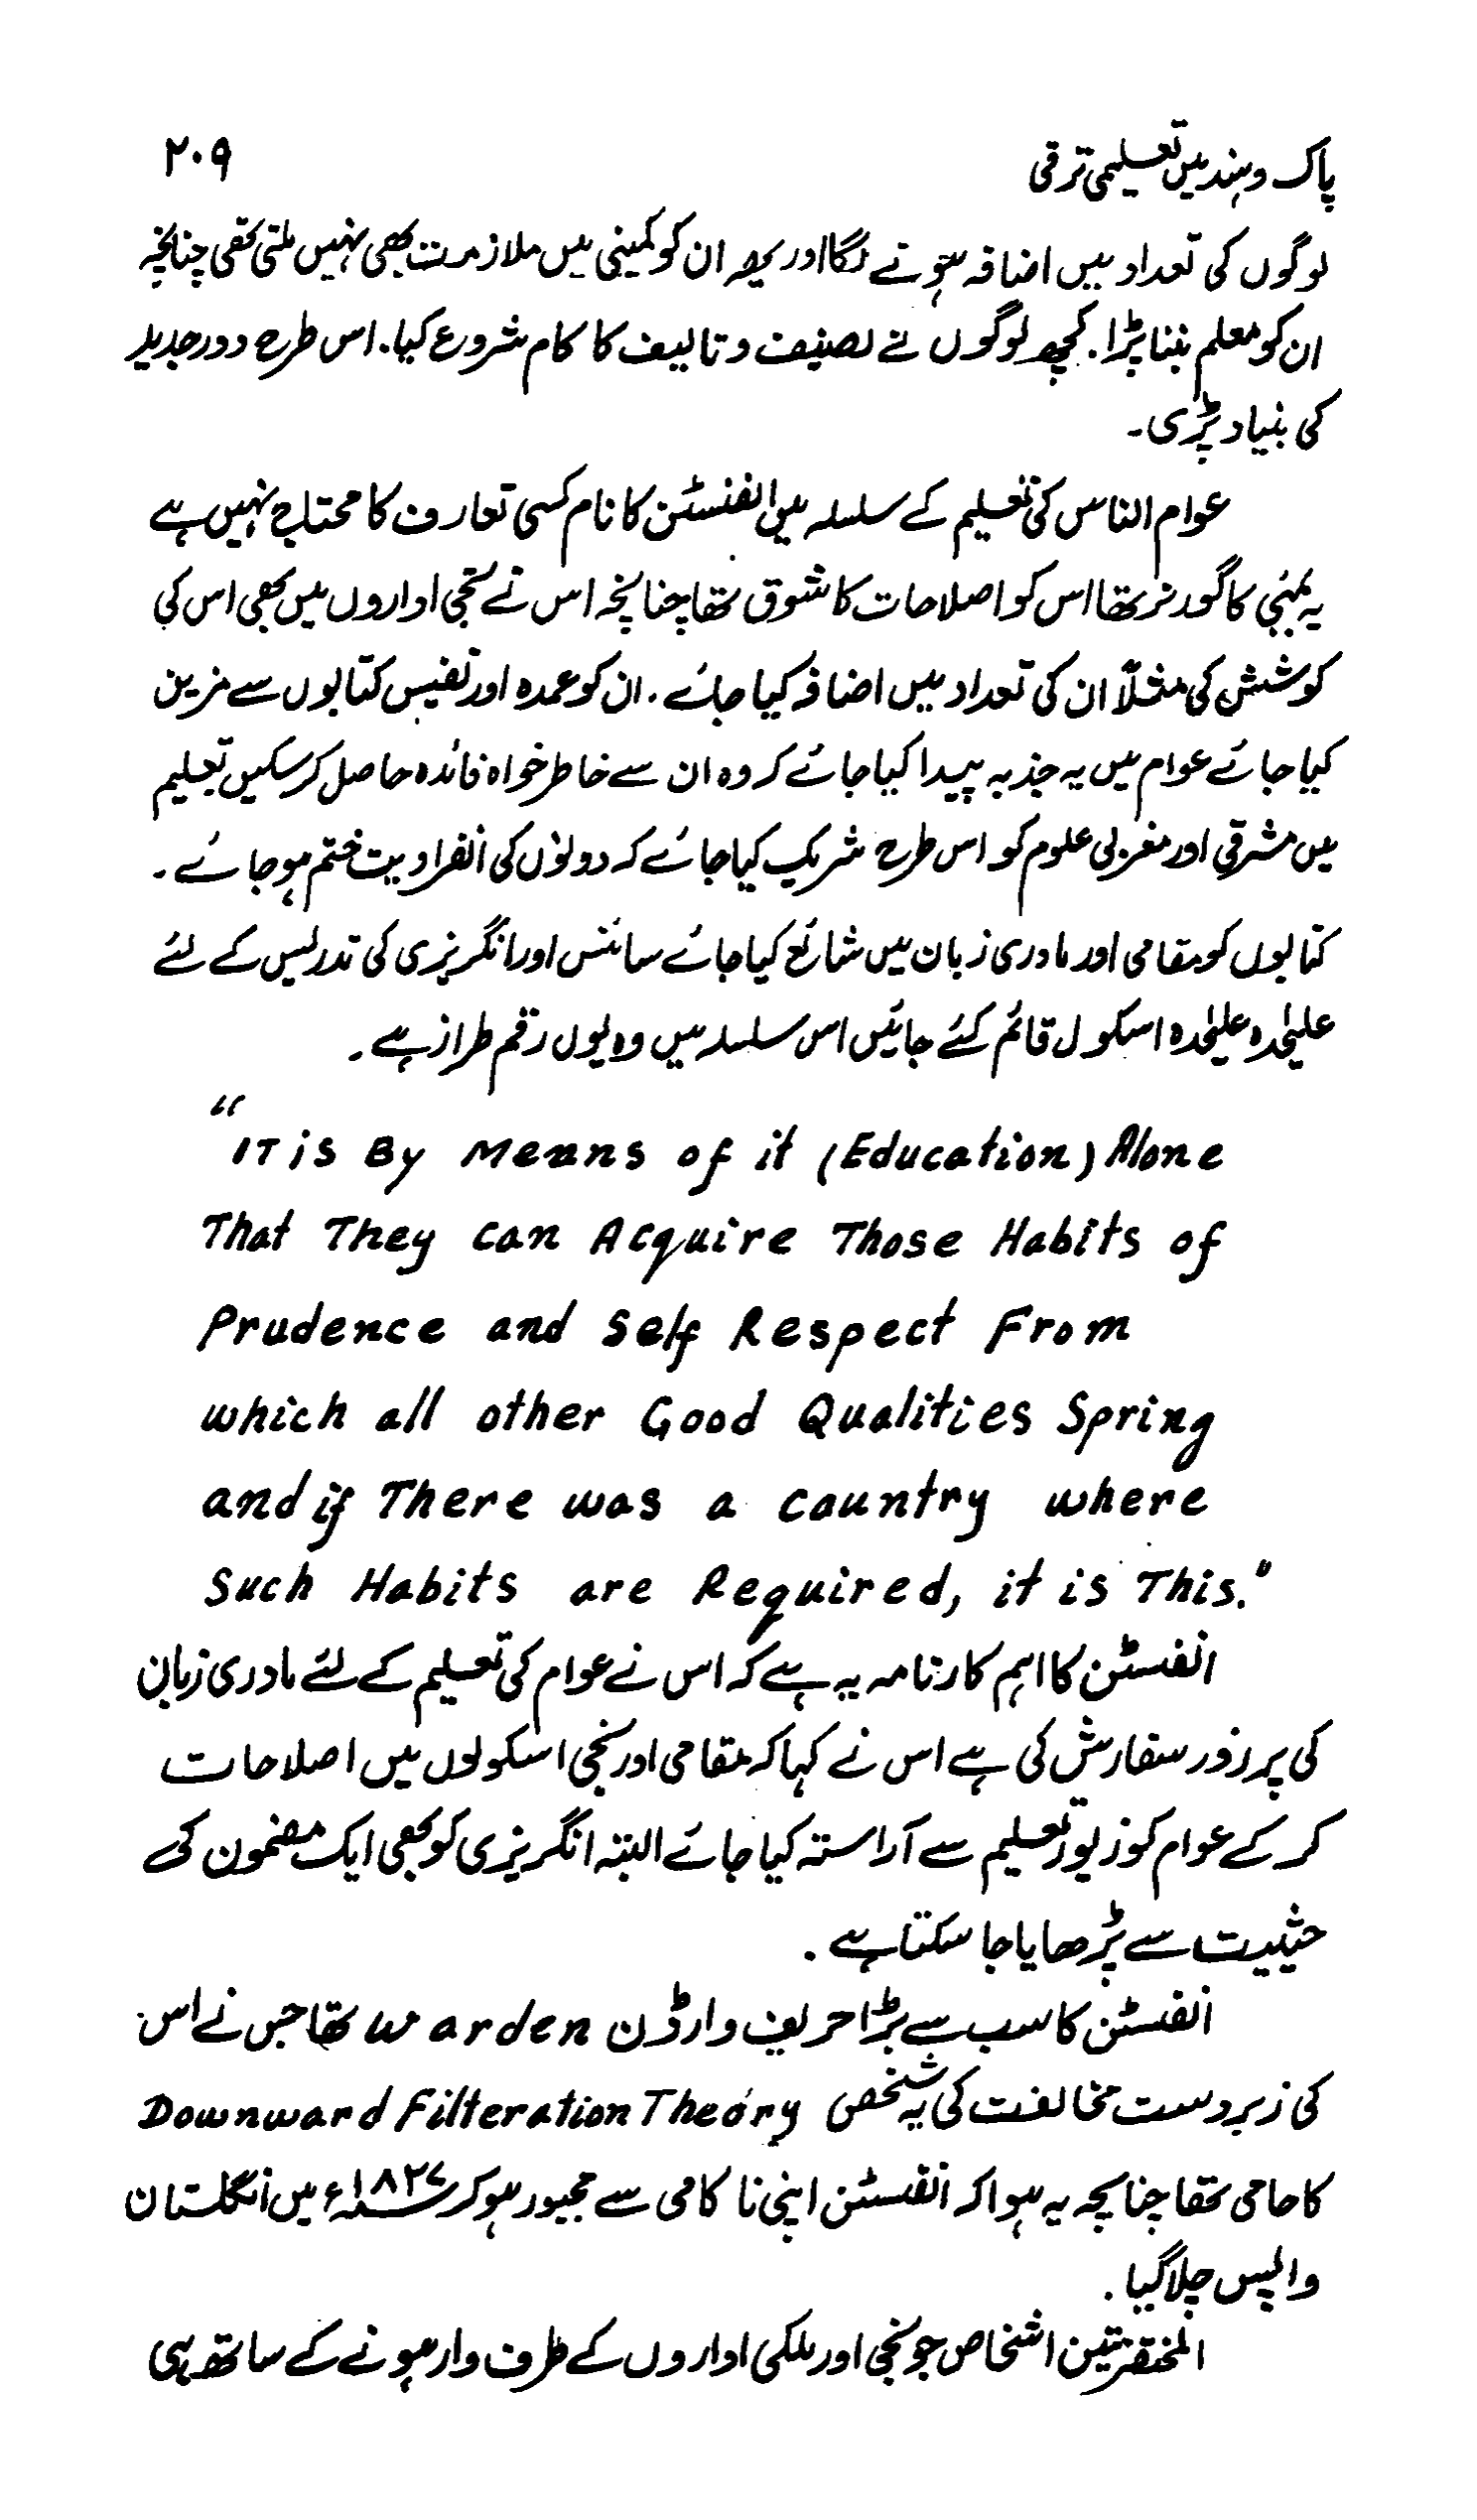 پاک و ہند میں تعلیمی ترقی ۲۰۹
لوگوں کی تعداد میں اضافہ ہونے لگا اور پھر ان کو کمپنی میں ملازمت بھی نہیں ملتی تھی چنانچہ
ان کو معلم بننا پڑا. کچھ لوگوں نے تصنیف و تالیف کا کام شروع کیا. اس طرح دور جدید
کی بنیاد پڑی۔
عوام الناس کی تعلیم کے سلسلہ میں الفنسٹن کا نام کسی تعارف کا محتاج نہیں ہے
یہ بمبئی کا گورنر تھا اس کو اصلاحات کا شوق تھا چنانچہ اس نے نجی اداروں میں بھی اس کی
کوشش کی مثلاً ان کی تعداد میں اضافہ کیا جائے. ان کو عمدہ اور نفیس کتابوں سے مزین
کیا جائے عوام میں یہ جذبہ پیدا کیا جائے کہ وہ ان سے خاطر خواہ فائدہ حاصل کر سکیں تعلیم
میں مشرقی اور مغربی علوم کو اس طرح شریک کیا جائے کہ دونوں کی انفرادیت ختم ہو جائے ۔
کتابوں کو مقامی اور مادری زبان میں شائع کیا جائے سائنس اور انگریزی کی تدریس کے لئے
علیٰحدہ علیٰحدہ اسکول قائم کئے جائیں اس سلسلہ میں وہ یوں رقم طراز ہے ۔
“IT is By Means of it (Education) Alone
That They can Acquire Those Habits of
Prudence and Self Respect From
which all other Good Qualities Spring
and if There was a country where
Such Habits are Required, it is This."
الفنسٹن کا اہم کارنامہ یہ ہے کہ اس نے عوام کی تعلیم کے لئے مادری زبان
کی پر زور سفارش کی ہے اس نے کہا کہ مقامی اور نجی اسکولوں میں اصلاحات
کر کے عوام کو زیور تعلیم سے آراستہ کیا جائے البتہ انگریزی کو بھی ایک مضمون کی
حثییت سے پڑھایا جا سکتا ہے .
الفنسٹن کا سب سے بڑا حریف وارڈن warden تھا جس نے اس
کی زبردست مخالفت کی یہ شخص Downward Filteration Theory
کا حامی تھا چنانچہ یہ ہوا کہ الفنسٹن اپنی ناکامی سے مجبور ہو کر ۱۸۲۷ء میں انگلستان
واپس چلا گیا .
المختصر تین اشخاص جو نجی اور ملکی اداروں کے طرف دار ہونے کے ساتھ ہی